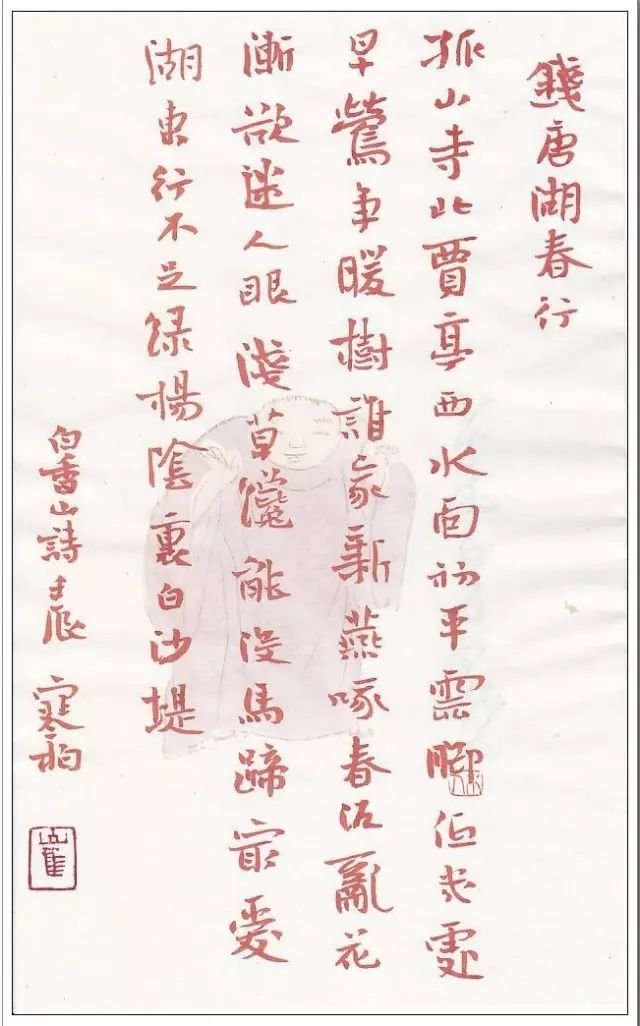 錢唐湖春行
孤山寺北賈亭西水面初平雲腳低幾處
早鶯爭暖樹誰家新燕啄春泥亂花
漸欲迷人眼淺草纔能沒馬蹄最愛
湖東行不足綠楊陰裏白沙堤
白香山詩壬辰寒柏
崔